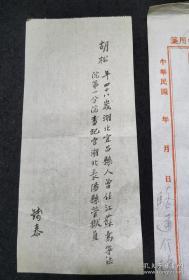 胡松年四十八歲湖北宜昌縣人曾任江蘇高等法
院第一分院書記官湖北長陽縣管獄員
用箋
中華民國
年
月
日